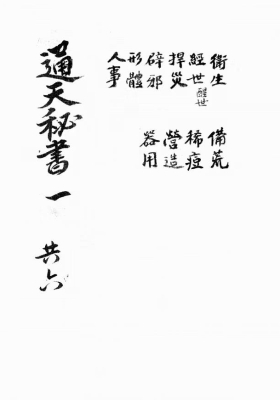 衛生
經世 醒世
捍災
辟邪
形體
人事
備荒
稀痘
營造
器用
通天秘書 一
共六